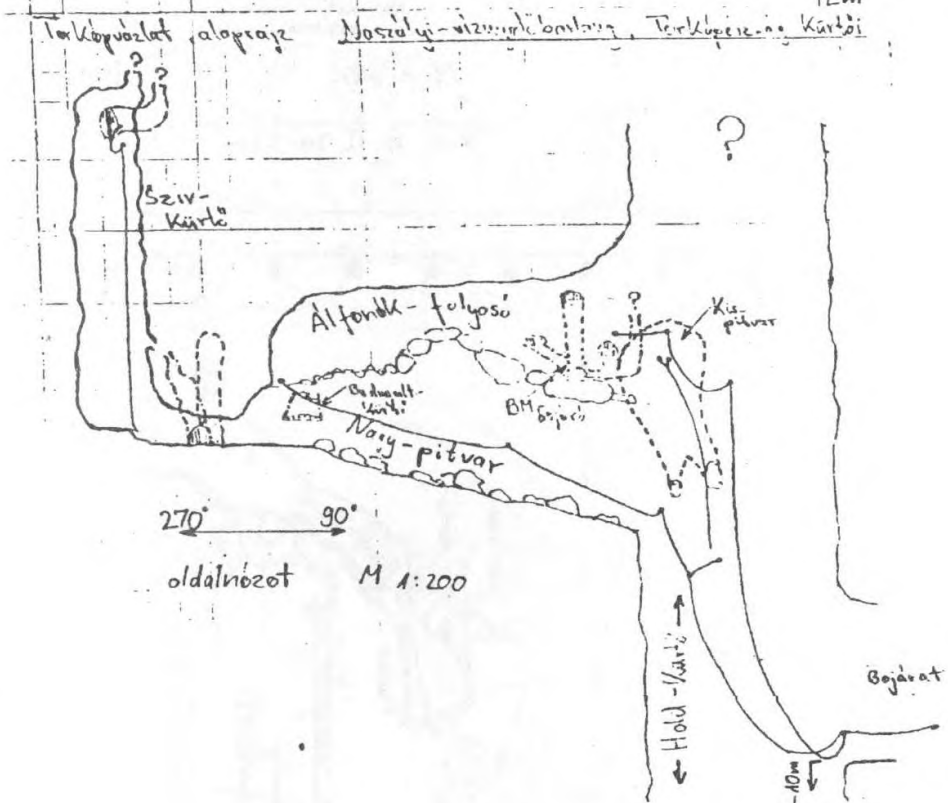 12m
Térképvázlat alaprajz Naszályi-víznyelőbarlang, Térképész-ág Kürtői
?
?
?
Sziv-
Kürtő
Álfenék-folyosó
?
Kis-
pitvar
BM
Nagy-pitvar
270° 90°
oldalnézet M 1:200
Hold-Kürtő
Bejárat
-10m